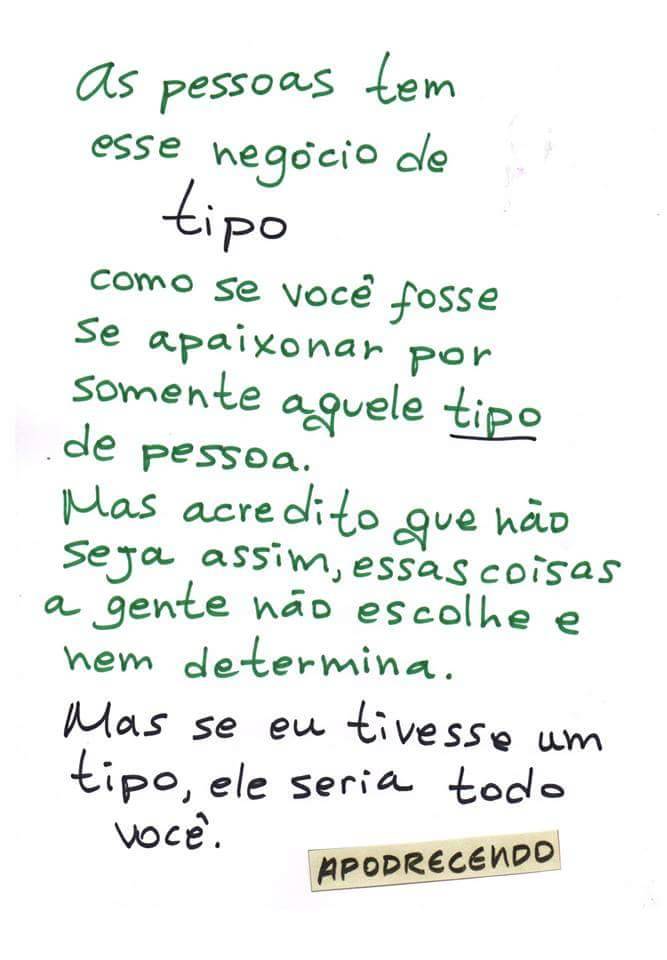 As pessoas tem
esse negócio de
tipo
como se você fosse
se apaixonar por
somente aquele tipo
de pessoa.
Mas acredito que não
seja assim, essas coisas
a gente não escolhe e
nem determina.
Mas se eu tivesse um
tipo, ele seria todo
você.
APODRECENDO